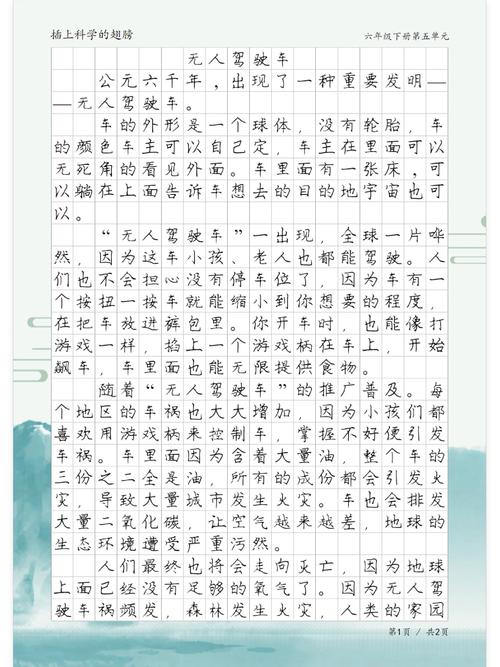 插上科学的翅膀 六年级下册第五单元
无人驾驶车
公元六千年，出现了一种重要发明—
—无人驾驶车。
车的外形是一个球体，没有轮胎，车
的颜色车主可以自己定，车主在里面可以
无死角的看见外面。车里面有一张床，可
以躺在上面告诉车想去的目的地宇宙也可
以。
“无人驾驶车”一出现，全球一片哗
然，因为这车小孩、老人也都能驾驶。人
们也不会担心没有停车位了，因为车有一
个按扭一按车就能缩小到你想要的程度，
在把车放进裤包里。你开车时，也能像打
游戏一样，掐上一个游戏柄在车上，开始
飙车，车里面也能无限提供食物。
随着“无人驾驶车”的推广普及。每
个地区的车祸也大大增加，因为小孩们都
喜欢用游戏柄来控制车，掌握不好便引发
车祸。车里面因为含着大量油，整个车的
三份之二全是油，所有的成份都会引发火
灾，导致大量城市发生火灾。车也会排发
大量二氧化碳，让空气越来越差，地球的
生态环境遭受严重污然。
人们最终也将会走向灭亡，因为地球
上面已经没有足够的氧气了。因为无人驾
驶车祸频发，森林发生火灾，人类的家园
第1页 / 共2页